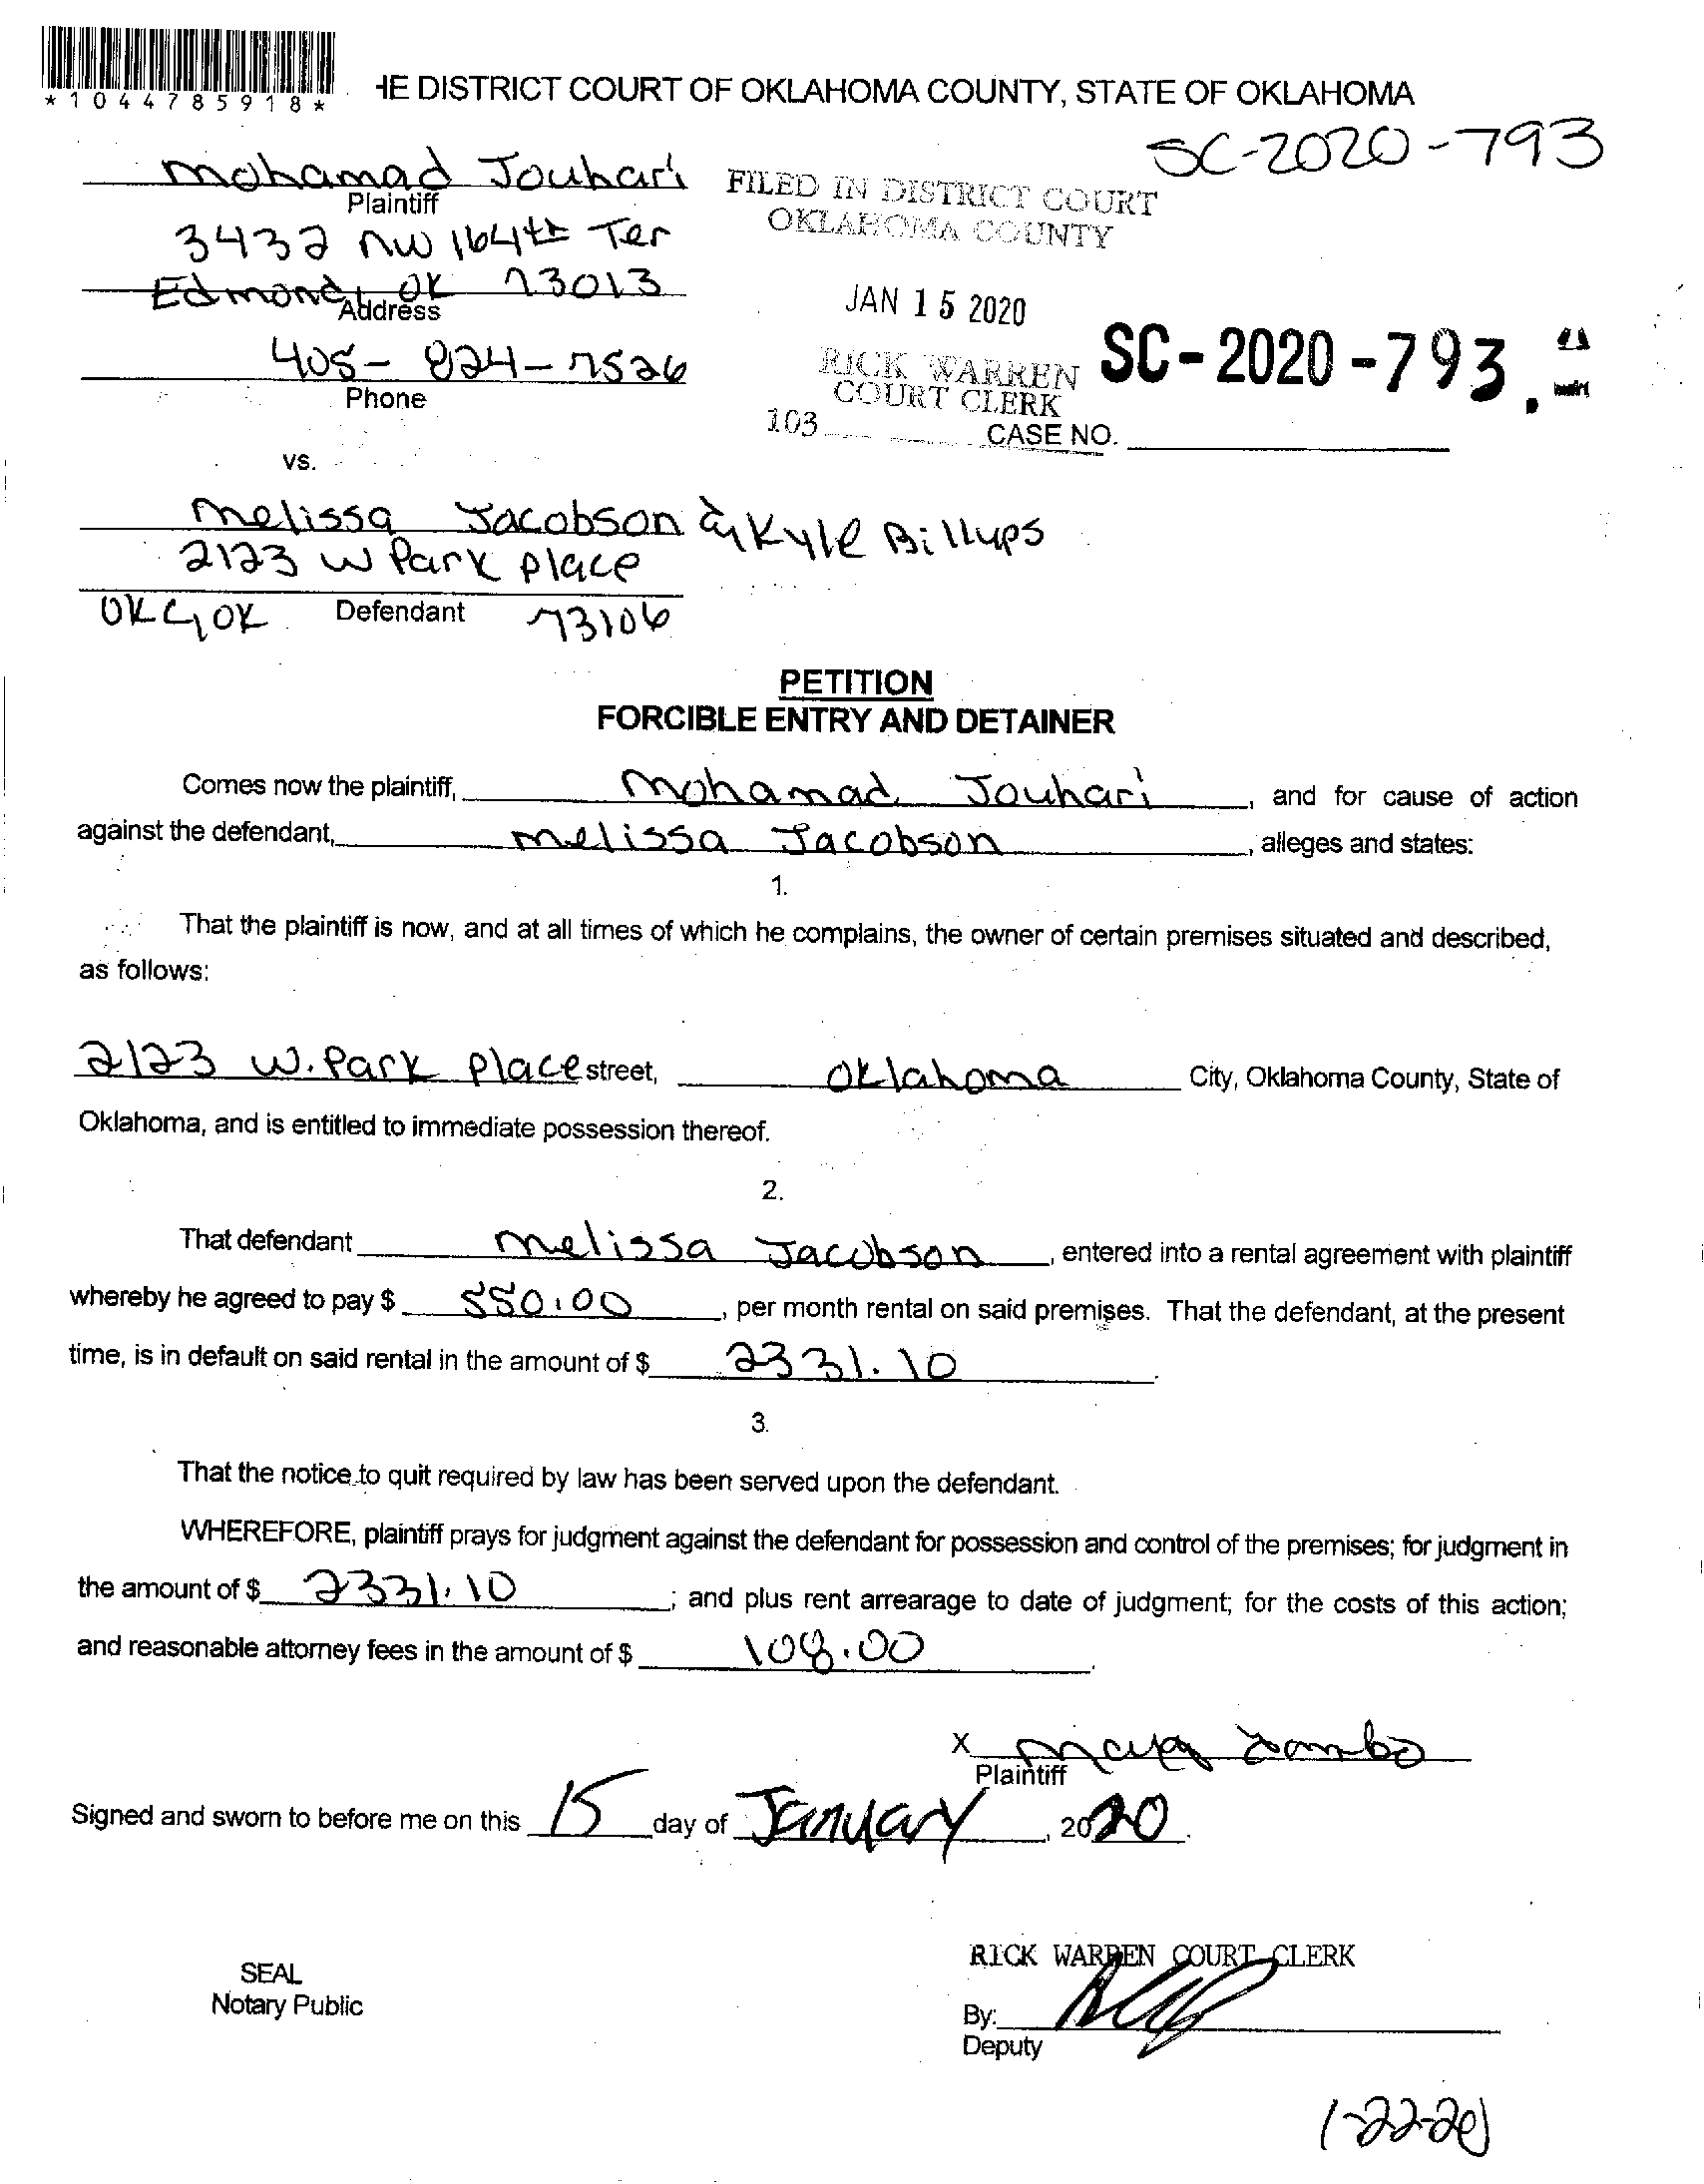 *1044785918*
HE DISTRICT COURT OF OKLAHOMA COUNTY, STATE OF OKLAHOMA
SC-2020-793
Mohamad Jouhari
Plaintiff
FILED IN DISTRICT COURT
OKLAHOMA COUNTY
3432 NW 164th Ter
Edmond, OK 73013
Address
JAN 15 2020
405-824-7526
Phone
RICK WARREN
COURT CLERK
SC-2020-793
103
CASE NO.
vs.
Melissa Jacobson & Kyle Billups
2123 W Park Place
OKC, OK Defendant 73106
PETITION
FORCIBLE ENTRY AND DETAINER
Comes now the plaintiff, Mohamad Jouhari, and for cause of action
against the defendant, Melissa Jacobson, alleges and states:
1.
That the plaintiff is now, and at all times of which he complains, the owner of certain premises situated and described,
as follows:
2123 W. Park Place street, Oklahoma City, Oklahoma County, State of
Oklahoma, and is entitled to immediate possession thereof.
2.
That defendant Melissa Jacobson, entered into a rental agreement with plaintiff
whereby he agreed to pay $ 550.00, per month rental on said premises. That the defendant, at the present
time, is in default on said rental in the amount of $ 2331.10.
3.
That the notice to quit required by law has been served upon the defendant.
WHEREFORE, plaintiff prays for judgment against the defendant for possession and control of the premises; for judgment in
the amount of $ 2331.10; and plus rent arrearage to date of judgment; for the costs of this action;
and reasonable attorney fees in the amount of $ 108.00.
X
Plaintiff
Signed and sworn to before me on this 15 day of January, 2020.
SEAL
Notary Public
RICK WARREN COURT CLERK
By:
Deputy
1-22-20